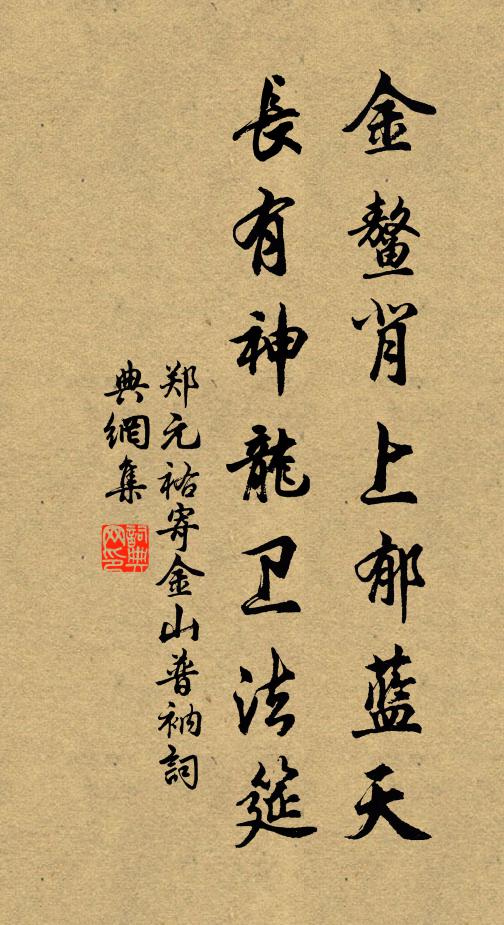 金鳌背上郁蓝天
長有神龍卫法筵
郑元祐寄金山普衲詞
典網集
詞典网印